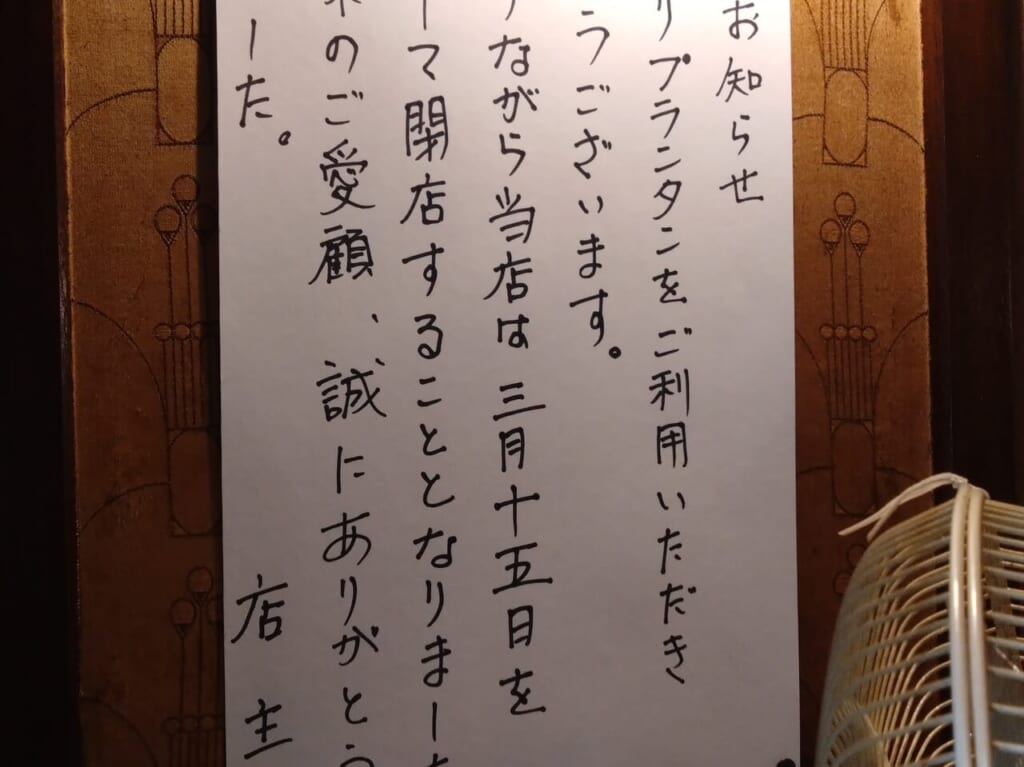 お知らせ
リプランタンをご利用いただき
うございます。
ながら当店は 三月十五日を
して閉店することとなりました
のご愛顧、誠にありがとう
した。
店主